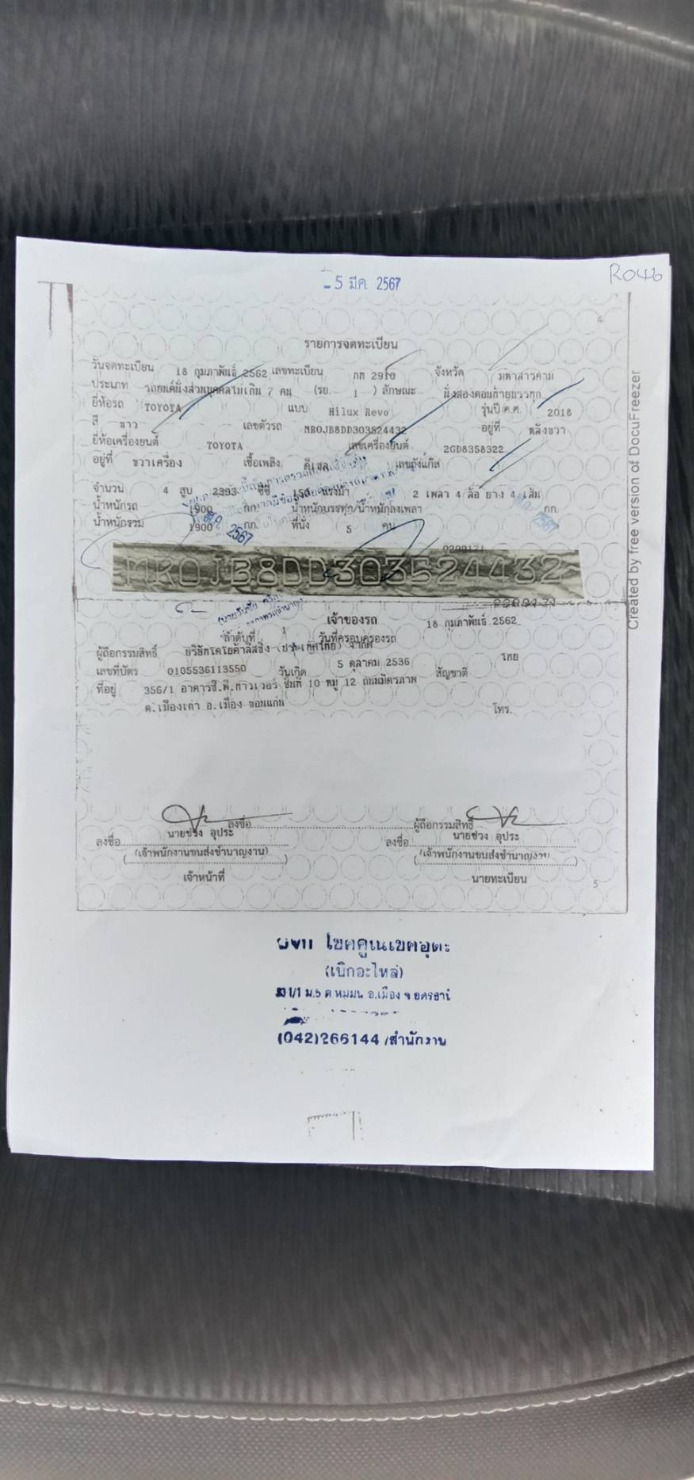 R046
5 มีค. 2567
4
รายการจดทะเบียน
วันจดทะเบียน 18 กุมภาพันธ์ 2562 เลขทะเบียน กท 2910 จังหวัด มหาสารคาม
ประเภท รถยนต์นั่งส่วนบุคคลไม่เกิน 7 คน (รย. 1 ) ลักษณะ นั่งสองตอนท้ายบรรทุก
ยี่ห้อรถ TOYOTA แบบ Hilux Revo รุ่นปี ค.ศ. 2018
สี ขาว เลขตัวรถ MR0JB8DD303524432 อยู่ที่ หลังขวา
ยี่ห้อเครื่องยนต์ TOYOTA เลขเครื่องยนต์ 2GD8358322
อยู่ที่ ขวาเครื่อง เชื้อเพลิง ดีเซล เลขถังแก๊ส
จำนวน 4 สูบ 2393 ซีซี 150 แรงม้า 2 เพลา 4 ล้อ ยาง 4 เส้น
น้ำหนักรถ 1900 กก. น้ำหนักบรรทุก/น้ำหนักลงเพลา กก.
น้ำหนักรวม 1900 กก. ที่นั่ง 5 คน
2567
MR0JB8DD303524432
เจ้าของรถ
ลำดับที่ 1 วันที่ครอบครองรถ 18 กุมภาพันธ์ 2562
ผู้ถือกรรมสิทธิ์ บริษัทโตโยต้าลิสซิ่ง (ประเทศไทย) จำกัด
เลขที่บัตร 0105536113550 วันเกิด 5 ตุลาคม 2536 สัญชาติ ไทย
ที่อยู่ 356/1 อาคารซี.พี.ทาวเวอร์ ชั้นที่ 10 หมู่ 12 ถนนมิตรภาพ
ต.เมืองเก่า อ.เมือง ขอนแก่น โทร.
ลงชื่อ ผู้ถือกรรมสิทธิ์
ลงชื่อ นายช่วง อุประ ลงชื่อ นายช่วง อุประ
(เจ้าพนักงานขนส่งชำนาญงาน) (เจ้าพนักงานขนส่งชำนาญงาน)
เจ้าหน้าที่ นายทะเบียน
5
โชคคูณเขคอุดะ
(เบิกอะไหล่)
ม.5 ต.หมูม่น อ.เมือง จ.อุดรธานี
(042)266144 /สำนักงาน
Created by free version of DocuFreezer